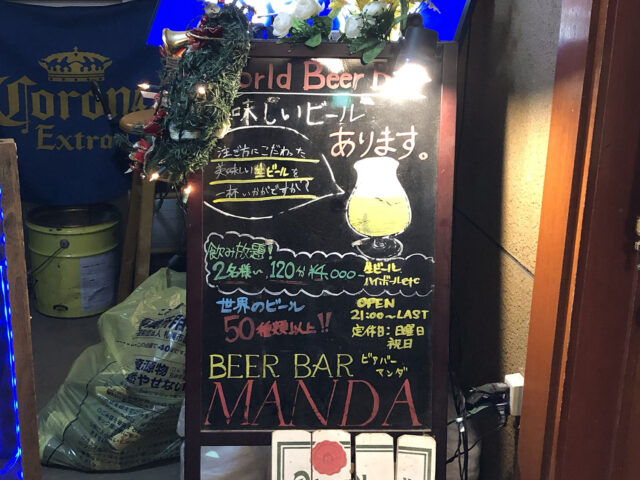 Corona
Extra
World Beer B
美味しいビール
あります。
注ぎ方にこだわった
美味しい生ビールを
一杯いかがですか?
飲み放題!
2名様〜, 120分¥4,000-
生ビール
ハイボールetc
世界のビール
50種類以上!!
OPEN
21:00〜LAST
定休日:日曜日
祝日
BEER BAR
ビアバー
マンダ
MANDA
資源物
燃やせない